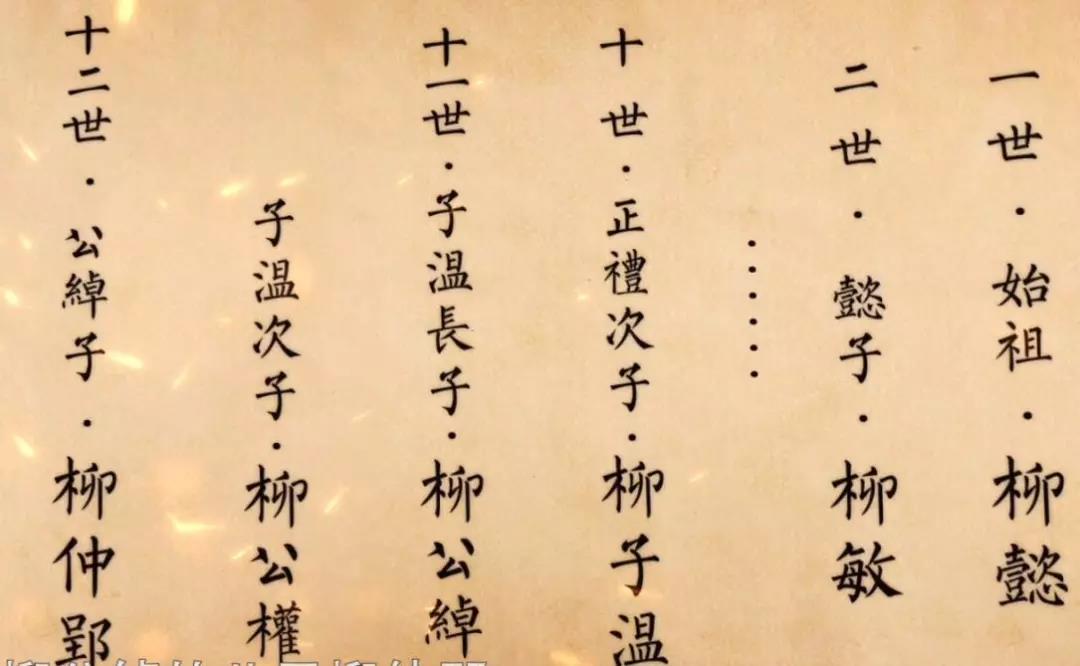 一世·始祖·柳懿
二世·懿子·柳敏
······
十世·正禮次子·柳子温
十一世·子温長子·柳公綽
子温次子·柳公權
十二世·公綽子·柳仲郢